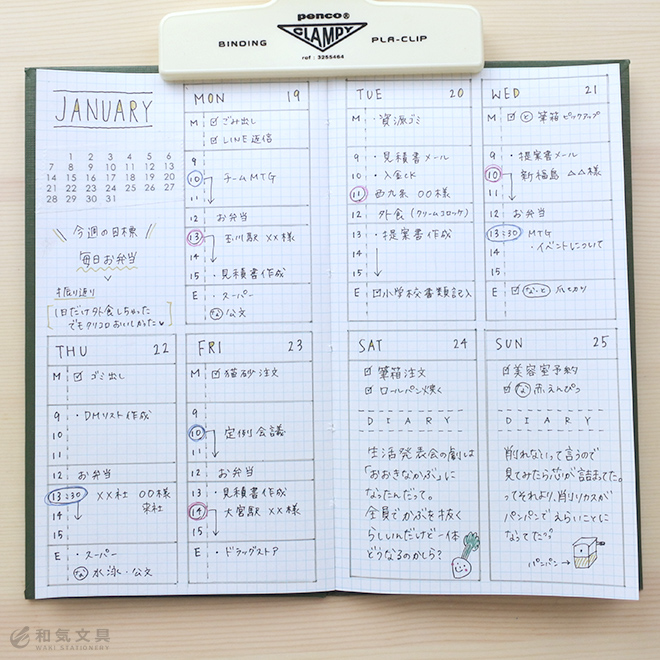 penco®
CLAMPY
BINDING
PLA-CLIP
ref : 3255464
JANUARY
1 2 3 4 5 6
7 8 9 10 11 12 13
14 15 16 17 18 19 20
21 22 23 24 25 26 27
28 29 30 31
今週の目標
毎日お弁当
振り返り
1日だけ外食しちゃった
でもクリコロおいしかった
MON 19
M ごみ出し
LINE返信
9
10 チームMTG
11
12 お弁当
13 玉川駅 ××様
14
15 ・見積書作成
E ・スーパー
な 公文
TUE 20
M ・資源ゴミ
9 ・見積書メール
10 ・入金CK
11 西九条 〇〇様
12 外食(クリームコロッケ)
13 ・提案書作成
14
15
E 小学校書類記入
WED 21
M と 筆箱ピックアップ
9 ・提案書メール
10 新福島 △△様
11
12 お弁当
13:30 MTG
14 ・イベントについて
15
E な・と 爪切り
THU 22
M ゴミ出し
9 ・DMリスト作成
10
11
12 お弁当
13:30 ××社 〇〇様
14 来社
15
E ・スーパー
な 水泳・公文
FRI 23
M 猫砂注文
9
10 定例会議
11
12 お弁当
13 ・見積書作成
14 大宮駅 ××様
15
E ・ドラッグストア
SAT 24
筆箱注文
ロールパン焼く
DIARY
生活発表会の劇は
「おおきなかぶ」に
なったんだって。
全員でかぶを抜く
らしいんだけど一体
どうなるのかしら?
SUN 25
美容室予約
な 赤えんぴつ
DIARY
削れないって言うので
見てみたら芯が詰まってた。
ってそれより、削りカスが
パンパンでえらいことに
なってた。
パンパン→
和気文具
WAKI STATIONERY